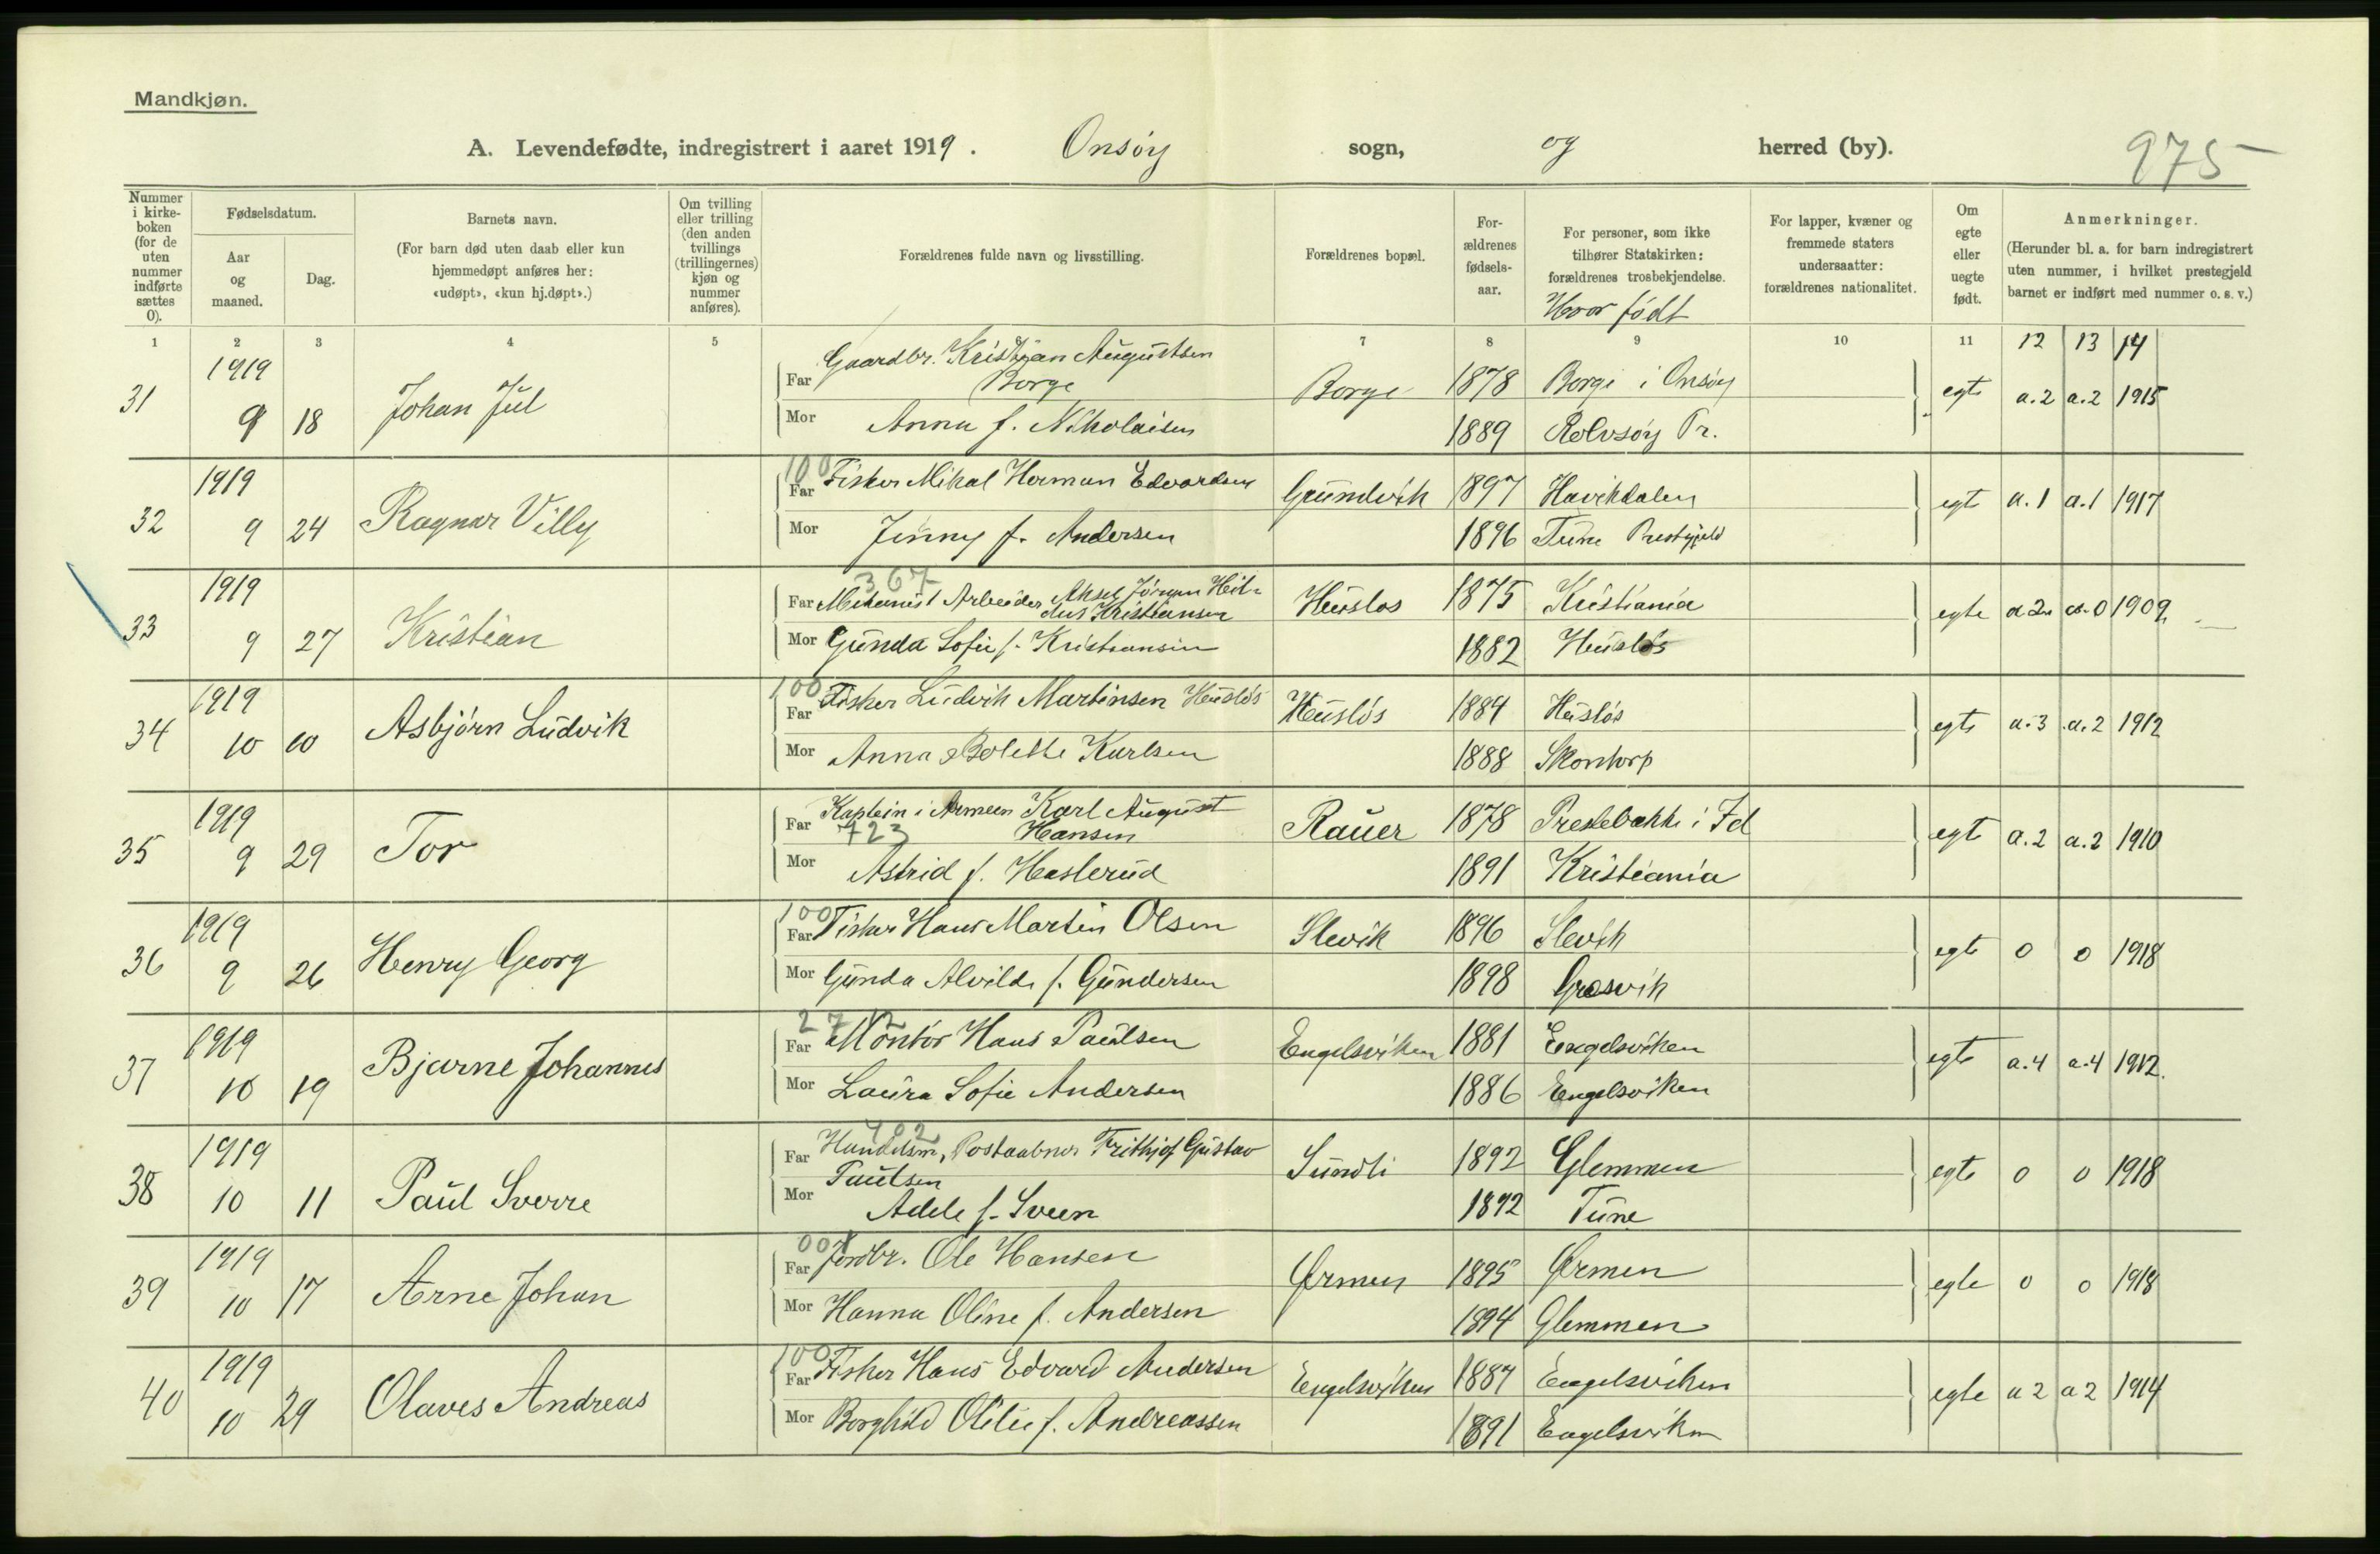 Mandkjøn.
A. Levendefødte, indregistrert i aaret 1919. Onsøy sogn, og herred (by). 975
Nummer i kirke-boken (for de uten nummer indførte sættes 0).
Fødselsdatum.
Aar og maaned.
Dag.
Barnets navn.
(For barn død uten daab eller kun hjemmedøpt anføres her: «udøpt», «kun hj.døpt».)
Om tvilling eller trilling (den anden tvillings (trillingernes) kjøn og nummer anføres).
Forældrenes fulde navn og livsstilling.
Forældrenes bopæl.
For-ældrenes fødsels-aar.
For personer, som ikke tilhører Statskirken: forældrenes trosbekjendelse.
Hvor født
For lapper, kvæner og fremmede staters undersaatter: forældrenes nationalitet.
Om egte eller uegte født.
Anmerkninger.
(Herunder bl. a. for barn indregistrert uten nummer, i hvilket prestegjeld barnet er indført med nummer o. s. v.)
1 2 3 4 5 7 8 9 10 11 12 13 14
31 1919 9 18 Johan Jul
Far Gaardbr. Kristian Augustsen Borge Borge 1878 Borge i Onsøy egte a.2 a.2 1915
Mor Anna f. Nikolaisen 1889 Rolvsøy Pr.
32 1919 9 24 Ragnar Villy
100 Far Fisker Mikal Herman Edvardsen Grundvik 1897 Havikdalen egte a.1 a.1 1917
Mor Jenny f. Andersen 1896 Tune Prestgjeld
33 1919 9 27 Kristian
367 Far Mekanisk Arbeider Aksel Kristiansen Huslos 1875 Kristiania egte a 2 a. 0 1909
Mor Gunda Sofie f. Kristiansen 1882 Husløs
34 1919 10 10 Asbjørn Ludvik
100 Far Fisker Ludvik Martinsen Husløs Husløs 1884 Husløs egte a.3 a.2 1912
Mor Anna Bolette Karlsen 1888 Skontorp
35 1919 9 29 Tor
Far Kaptein i Armeen Karl August Hansen 723 Rauer 1878 Prestebakke i Id egte a.2 a.2 1910
Mor Astrid f. Haslerud 1891 Kristiania
36 1919 9 26 Henry Georg
100 Far Fisker Hans Martin Olsen Slevik 1896 Slevik egte 0 0 1918
Mor Gunda Alvilde f. Gundersen 1898 Gresvik
37 1919 10 19 Bjarne Johannes
27 Far Montør Hans Paulsen Engelsviken 1881 Engelsviken egte a.4 a.4 1912.
Mor Laura Sofie Andersen 1886 Engelsviken
38 1919 10 11 Paul Sverre
402 Far Handelsm, Postaabner Frithjof Gustav Paulsen Sundli 1892 Glemmen egte 0 0 1918
Mor Adele f. Sveen 1892 Tune
39 1919 10 17 Arne Johan
00 Far Jordbr. Ole Hansen Ørmen 1895 Ørmen egte 0 0 1918
Mor Hanna Oline f. Andersen 1894 Glemmen
40 1919 10 29 Olaves Andreas
100 Far Fisker Hans Edvard Andersen Engelsviken 1887 Engelsviken egte a 2 a 2 1914
Mor Borghild Otilie f. Andreassen 1891 Engelsviken